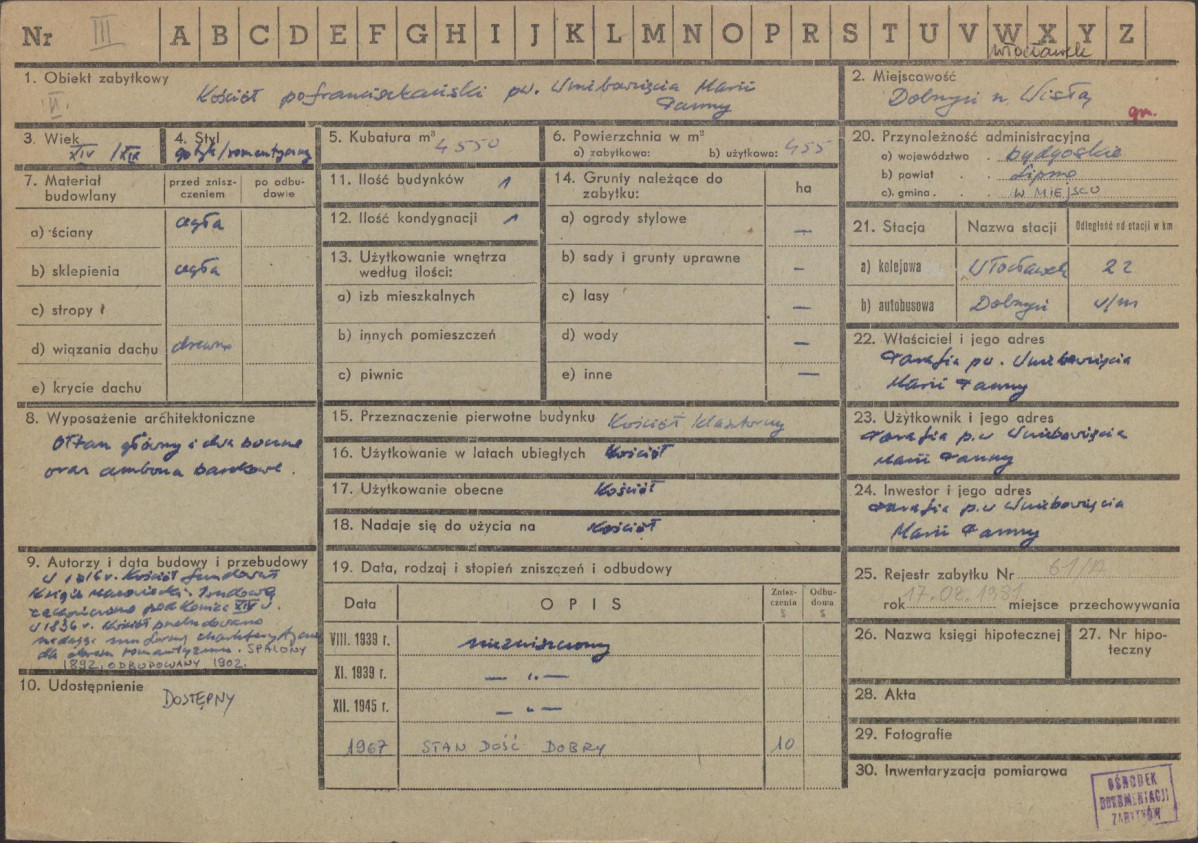 Nr III A B C D E F G H I J K L M N O P R S T U V W X Y Z
Włocławek
1. Obiekt zabytkowy
Kościół pofranciszkański pw. Wniebowzięcia Marii
Panny
2. Miejscowość
Dobrzyń n. Wisłą
gm.
3. Wiek
XIV / XIX
4. Styl
gotyk/romantyczny
5. Kubatura m³ 4550
6. Powierzchnia w m²
a) zabytkowa: b) użytkowa: 455
7. Materiał budowlany
przed zniszczeniem
po odbudowie
a) ściany cegła
b) sklepienia cegła
c) stropy
d) wiązania dachu drewno
e) krycie dachu
8. Wyposażenie architektoniczne
Ołtarz główny i dwa boczne
oraz ambona barokowe.
9. Autorzy i data budowy i przebudowy
Kościół fundował
Książe Mazowiecki. Budowę
zakończono pod koniec XIV w.
W 1836 r. Kościół przebudowano
nadając mu formy charakterystyczne
dla okresu romantyzmu. SPALONY
1892, ODBUDOWANY 1902.
10. Udostępnienie
DOSTĘPNY
11. Ilość budynków 1
12. Ilość kondygnacji 1
13. Użytkowanie wnętrza
według ilości:
a) izb mieszkalnych
b) innych pomieszczeń
c) piwnic
14. Grunty należące do
zabytku:
ha
a) ogrody stylowe —
b) sady i grunty uprawne —
c) lasy —
d) wody —
e) inne —
15. Przeznaczenie pierwotne budynku Kościół klasztorny
16. Użytkowanie w latach ubiegłych Kościół
17. Użytkowanie obecne Kościół
18. Nadaje się do użycia na Kościół
19. Data, rodzaj i stopień zniszczeń i odbudowy
Data OPIS Zniszczenia % Odbudowa %
VIII. 1939 r. niezniszczony
XI. 1939 r. — „ —
XII. 1945 r. — „ —
1967 STAN DOŚĆ DOBRY 10
20. Przynależność administracyjna
a) województwo bydgoskie
b) powiat Lipno
c) gmina W MIEJSCU
21. Stacja Nazwa stacji Odległość od stacji w km
a) kolejowa Włocławek 22
b) autobusowa Dobrzyń w/m
22. Właściciel i jego adres
Parafia pw. Wniebowzięcia
Marii Panny
23. Użytkownik i jego adres
Parafia p.w Wniebowzięcia
Marii Panny
24. Inwestor i jego adres
Parafia p.w Wniebowzięcia
Marii Panny
25. Rejestr zabytku Nr 61/A
rok 17.02.1931 miejsce przechowywania
26. Nazwa księgi hipotecznej
27. Nr hipoteczny
28. Akta
29. Fotografie
30. Inwentaryzacja pomiarowa
OŚRODEK
DOKUMENTACJI
ZABYTKÓW